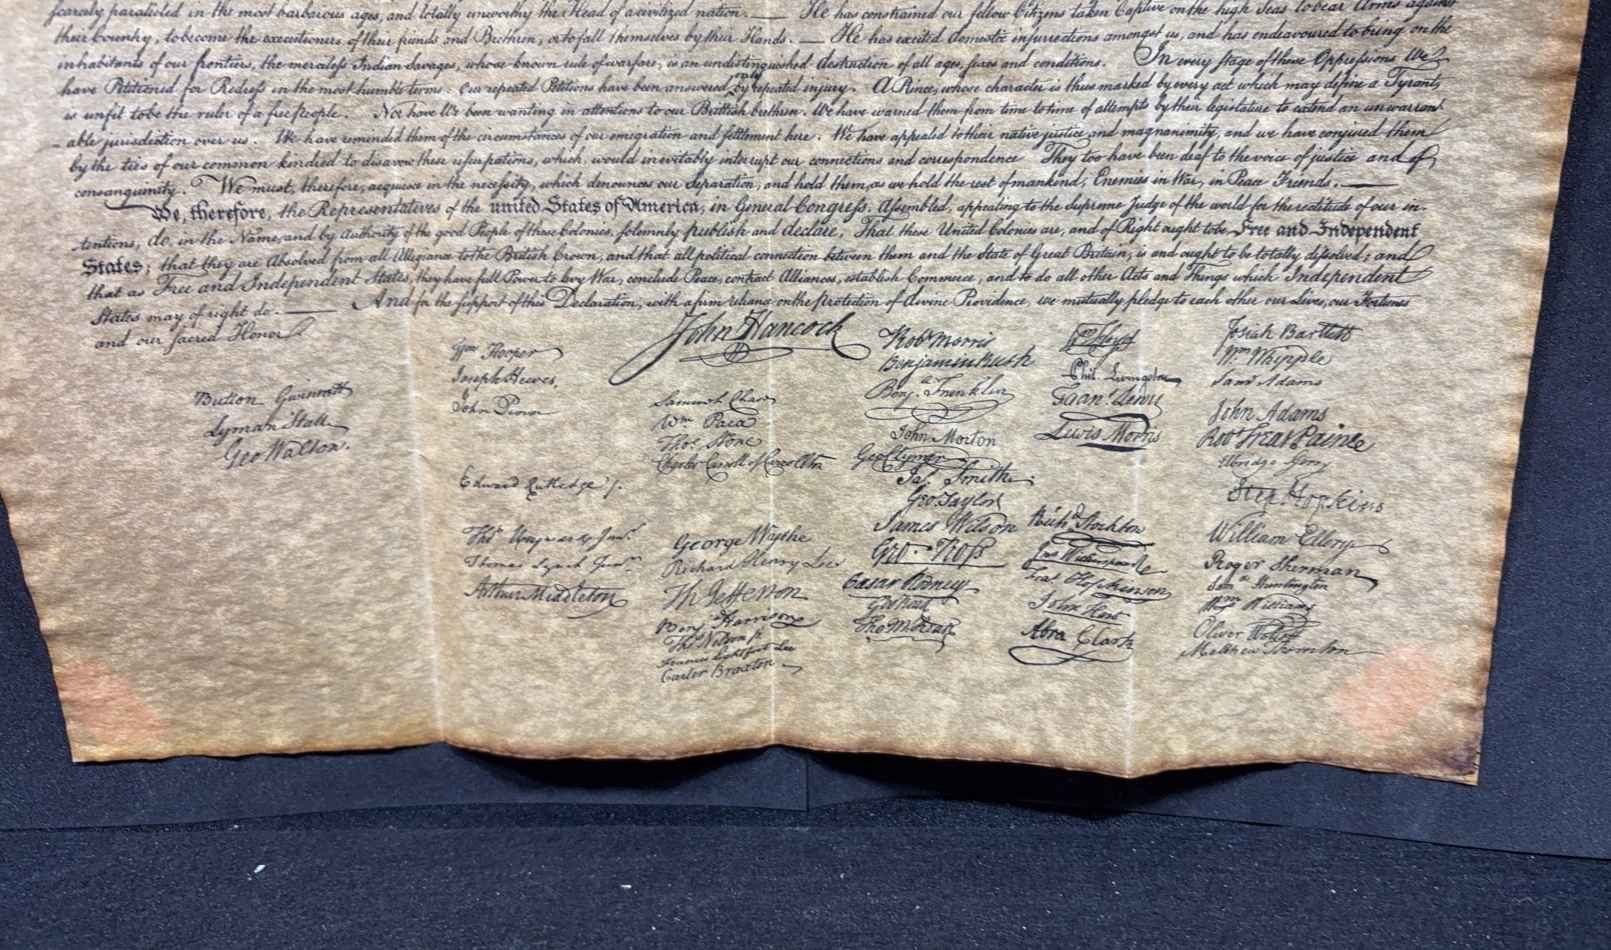 scarcely paralleled in the most barbarous ages, and totally unworthy the Head of a civilized nation. — He has constrained our fellow Citizens taken Captive on the high Seas to bear Arms against
their Country, to become the executioners of their friends and Brethren, or to fall themselves by their Hands. — He has excited domestic insurrections amongst us, and has endeavoured to bring on the
inhabitants of our frontiers, the merciless Indian Savages, whose known rule of warfare, is an undistinguished destruction of all ages, sexes and conditions. In every stage of these Oppressions We
have Petitioned for Redress in the most humble terms: Our repeated Petitions have been answered only by repeated injury. A Prince, whose character is thus marked by every act which may define a Tyrant,
is unfit to be the ruler of a free people. Nor have We been wanting in attentions to our Brittish brethren. We have warned them from time to time of attempts by their legislature to extend an unwarrant-
-able jurisdiction over us. We have reminded them of the circumstances of our emigration and settlement here. We have appealed to their native justice and magnanimity, and we have conjured them
by the ties of our common kindred to disavow these usurpations, which, would inevitably interrupt our connections and correspondence They too have been deaf to the voice of justice and of
consanguinity. We must, therefore, acquiesce in the necessity, which denounces our Separation, and hold them, as we hold the rest of mankind, Enemies in War, in Peace Friends. —
We, therefore, the Representatives of the united States of America, in General Congress, Assembled, appealing to the Supreme Judge of the world for the rectitude of our in-
tentions, do, in the Name, and by Authority of the good People of these Colonies, solemnly publish and declare, That these United Colonies are, and of Right ought to be Free and Independent
States; that they are Absolved from all Allegiance to the British Crown, and that all political connection between them and the State of Great Britain, is and ought to be totally dissolved; and
that as Free and Independent States, they have full Power to levy War, conclude Peace, contract Alliances, establish Commerce, and to do all other Acts and Things which Independent
States may of right do. — And for the support of this Declaration, with a firm reliance on the protection of divine Providence, we mutually pledge to each other our Lives, our Fortunes
and our sacred Honor.
Button Gwinnett
Lyman Hall
Geo Walton.
Wm Hooper
Joseph Hewes,
John Penn
Edward Rutledge /.
Thos Heyward Junr.
Thomas Lynch Junr.
Arthur Middleton
John Hancock
Samuel Chase
Wm Paca
Thos Stone
Charles Carroll of Carrollton
George Wythe
Richard Henry Lee
Th Jefferson
Benj Harrison
Thos Nelson jr.
Francis Lightfoot Lee
Carter Braxton
Robt Morris
Benjamin Rush
Benja. Franklin
John Morton
Geo Clymer
Jas. Smith.
Geo Taylor
James Wilson
Geo. Ross
Caesar Rodney
Geo Read
Tho M:Kean
Wm Floyd
Phil. Livingston
Frans. Lewis
Lewis Morris
Richd Stockton
Jno Witherspoon
Fras. Hopkinson
John Hart
Abra Clark
Josiah Bartlett
Wm Whipple
Saml Adams
John Adams
Robt Treat Paine
Elbridge Gerry
Step. Hopkins
William Ellery
Roger Sherman
Saml Huntington
Wm Williams
Oliver Wolcott
Matthew Thornton